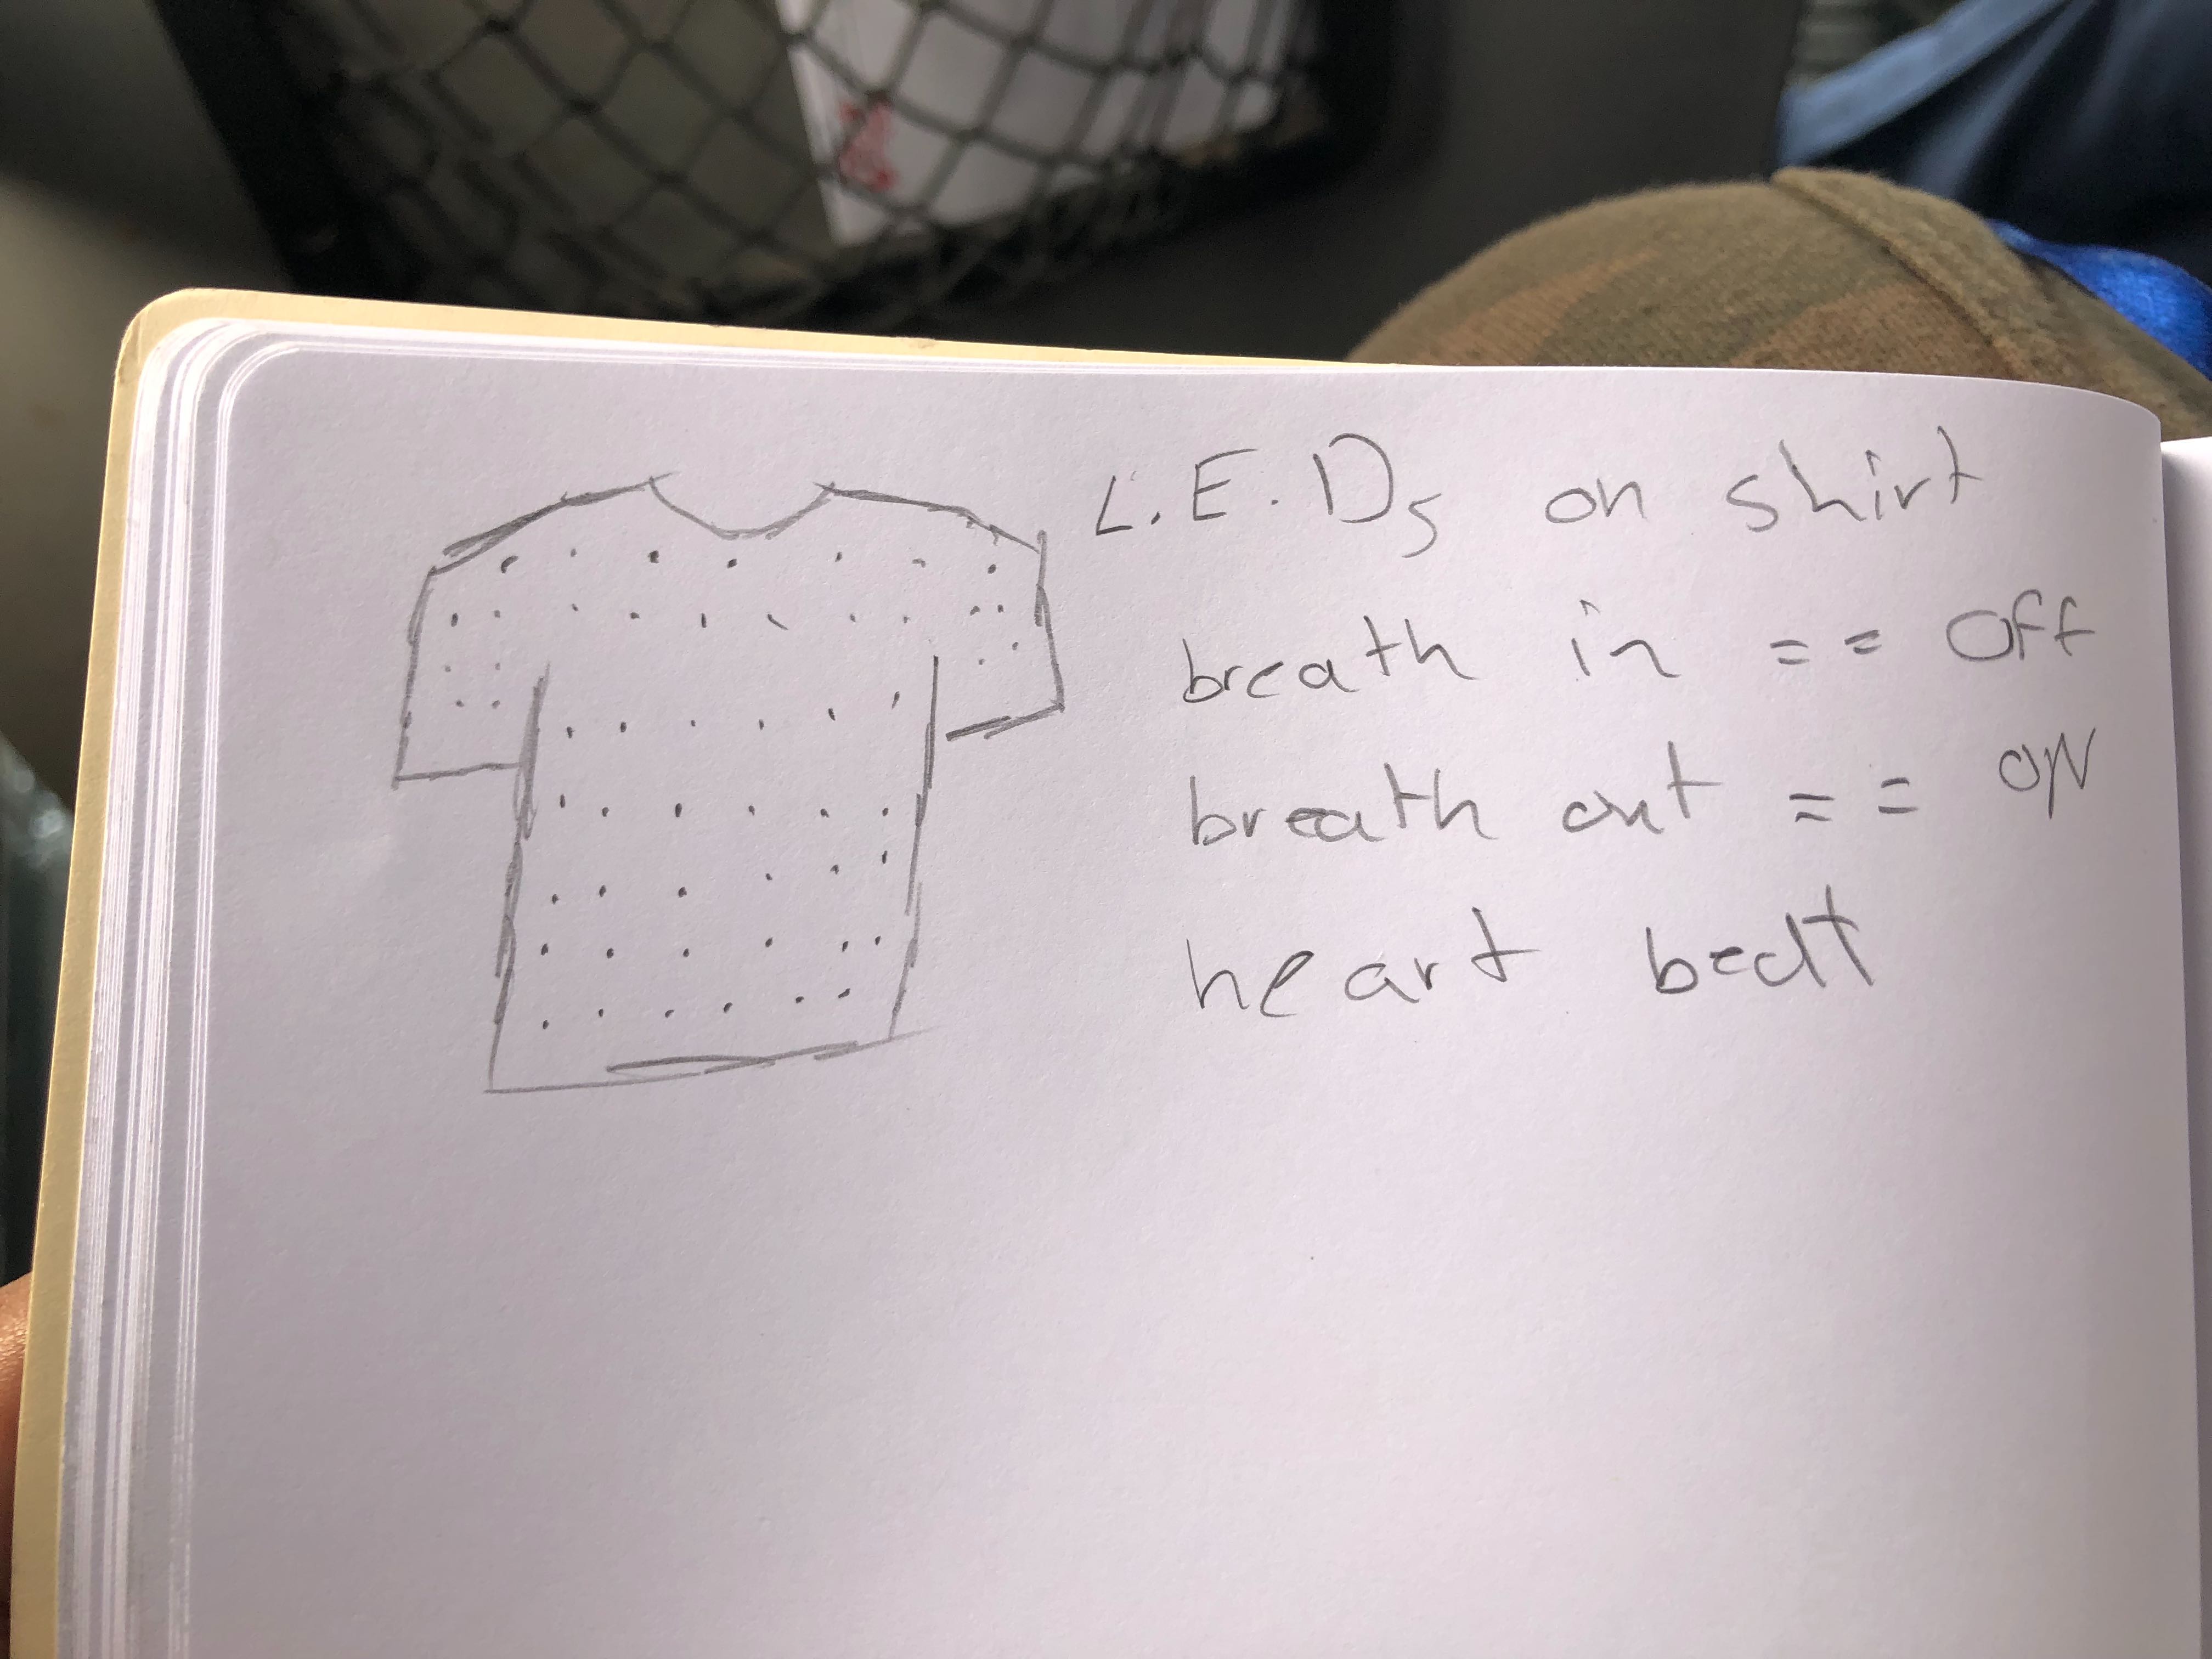 L.E.Ds on shirt
breath in == Off
breath out == ON
heart beat